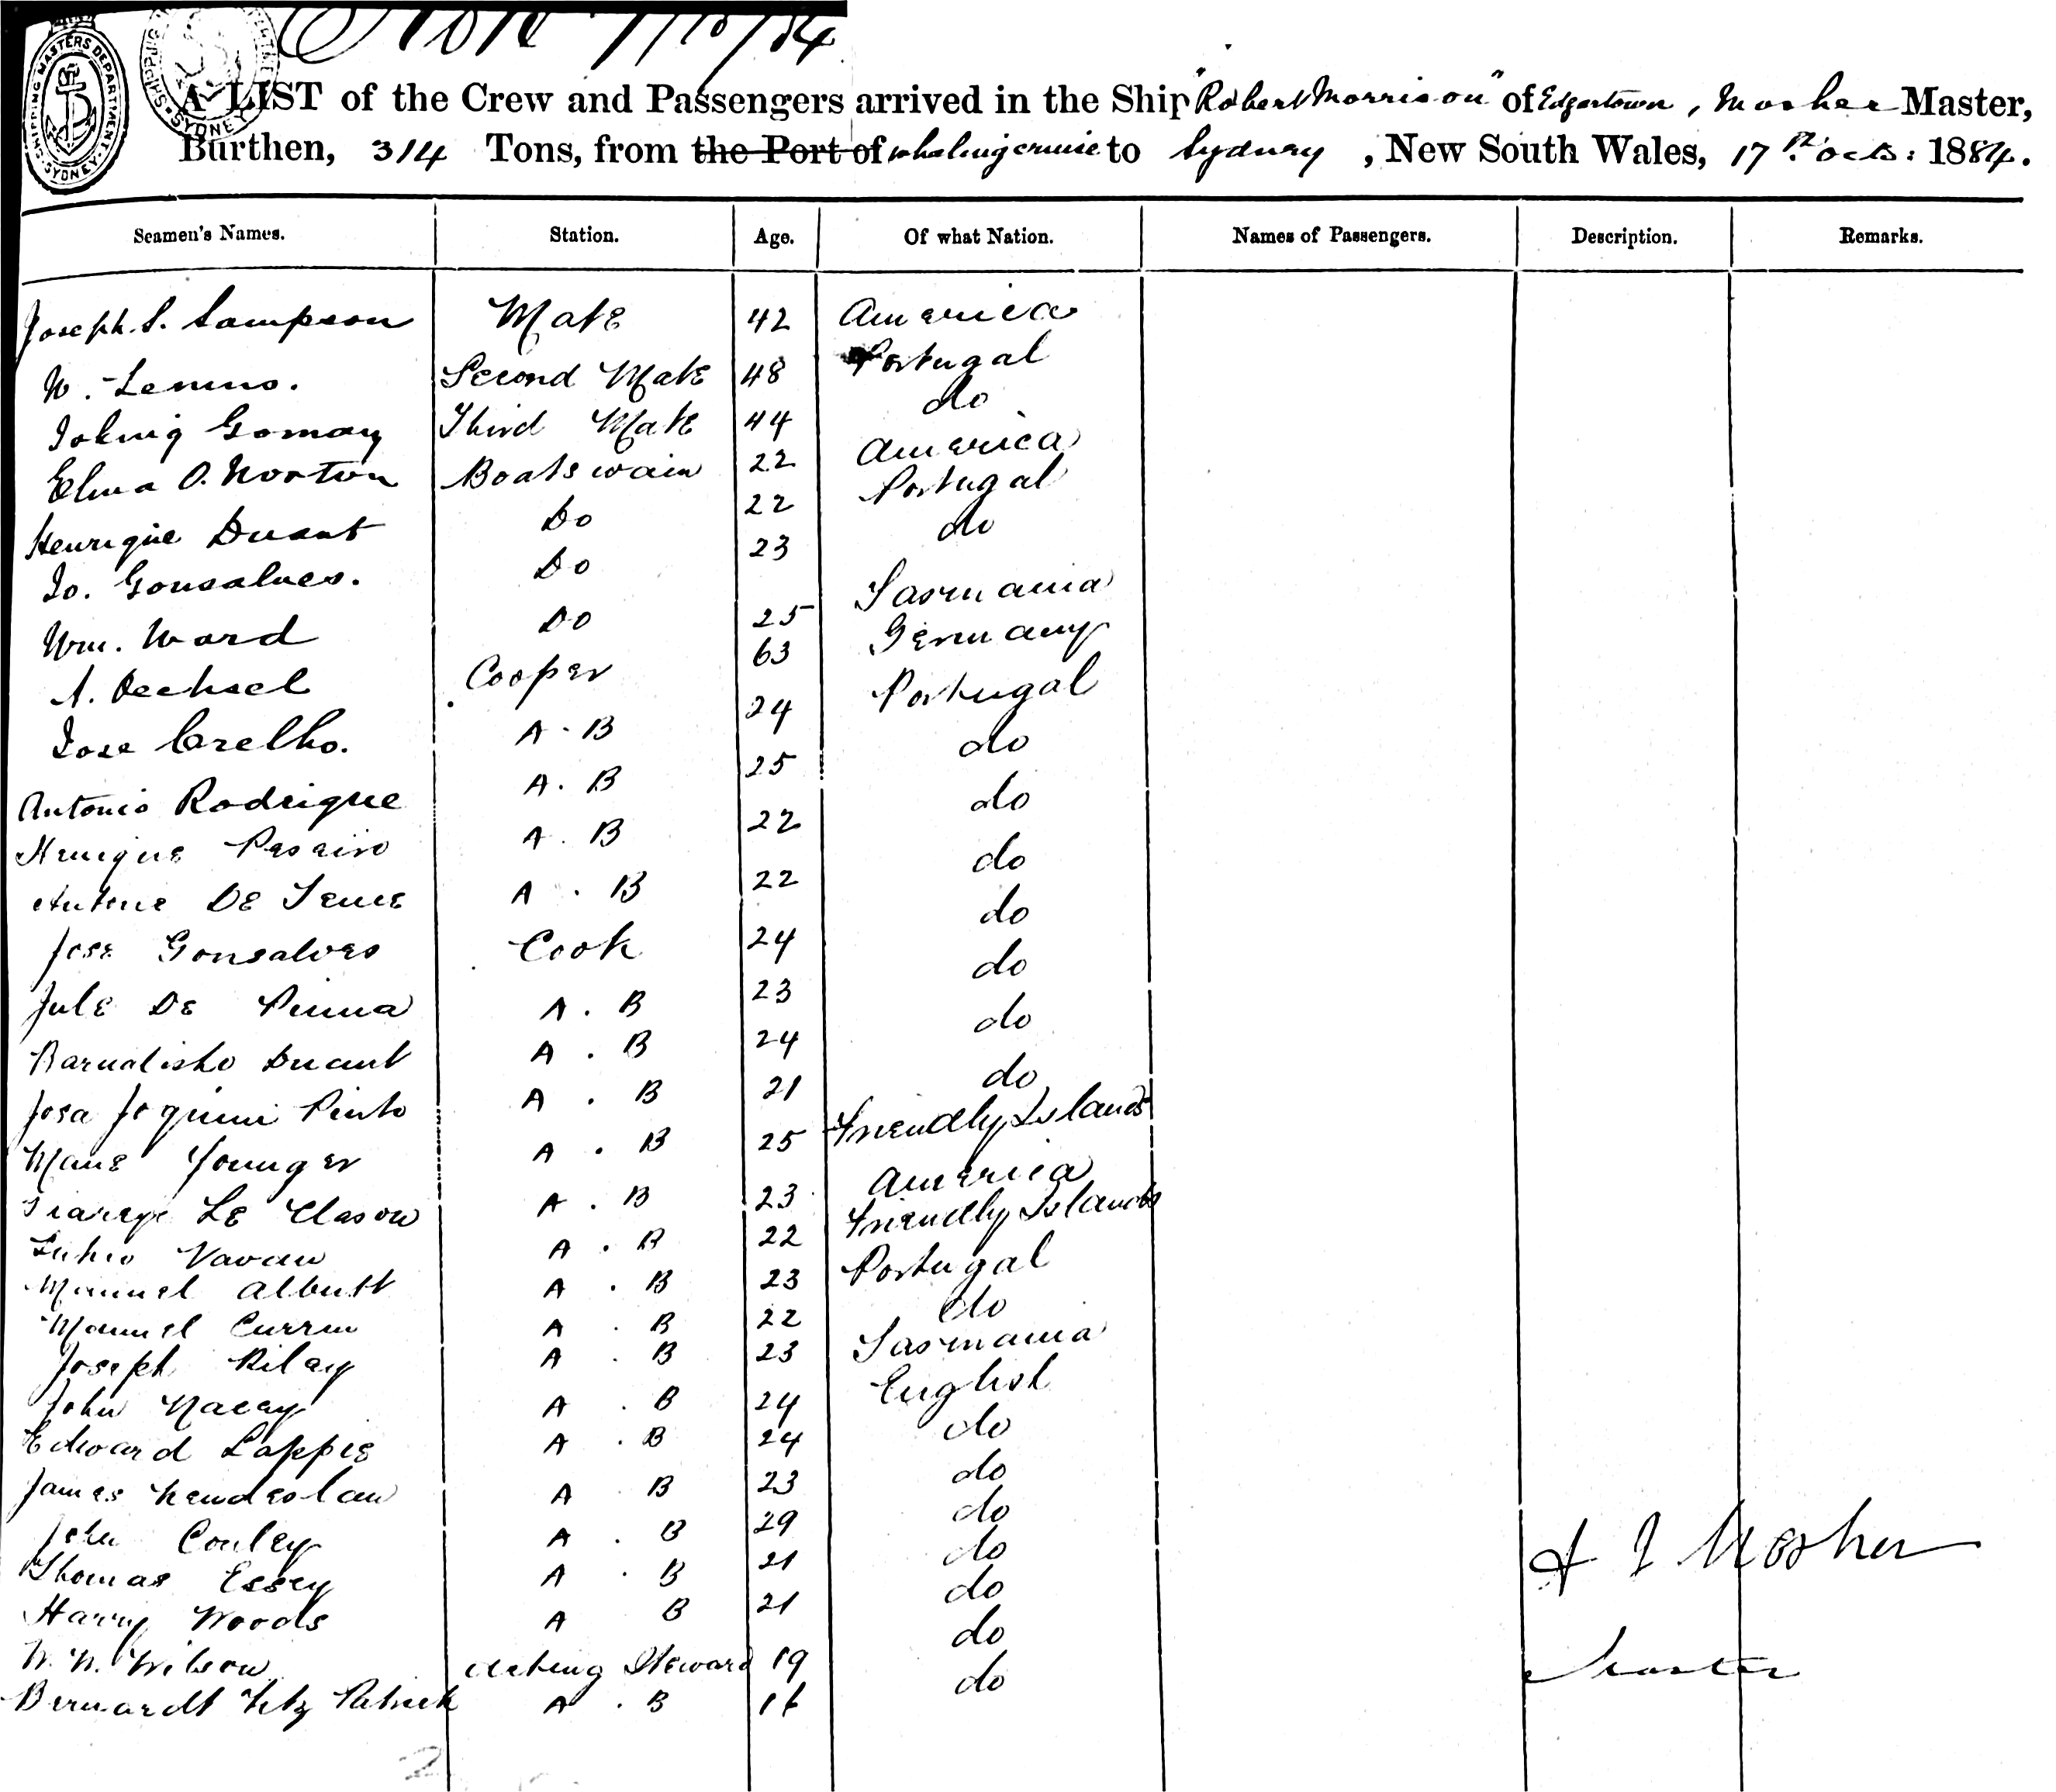 SHIPPING MASTERS DEPARTMENT SYDNEY
SYDNEY
A LIST of the Crew and Passengers arrived in the Ship "Robert Morrison" of Edgartown, Mosher Master,
Burthen, 314 Tons, from the Port of whaling cruise to Sydney, New South Wales, 17th Octr: 1884.
Seamen's Names. Station. Age. Of what Nation. Names of Passengers. Description. Remarks.
Joseph S. Sampson Mate 42 America
Second Mate 48 Portugal
Gomay Third Mate 44 do
Elma O. Norton Boatswain 22 America
Henrique Duant Do 22 Portugal
Jo. Gonsalves. Do 23 do
Wm. Ward Do 25 Tasmania
A. Cooper 63 Germany
Jose A.B 24 Portugal
Antonio Rodrigue A.B 25 do
A.B 22 do
De A.B 22 do
Jose Gonsalves Cook 24 do
Jule De Pinna A.B 23 do
Duant A.B 24 do
Josa Joquini Pinto A.B 21 do
Mane Younger A.B 25 Friendly Islands
Le Clason A.B 23 America
Vavau A.B 22 Friendly Islands
Manuel Albutt A.B 23 Portugal
Manuel A.B 22 do
Joseph Rilay A.B 23 Tasmania
John Nacey A.B 24 English
Edward Lappie A.B 24 do
James A.B 23 do
John Conley A.B 29 do
Thomas Essey A.B 21 do
Harry Woods A B 21 do
W. Wilson Acting Steward 19 do
Bernardt Fitz Patrick A.B do
Mosher
Master